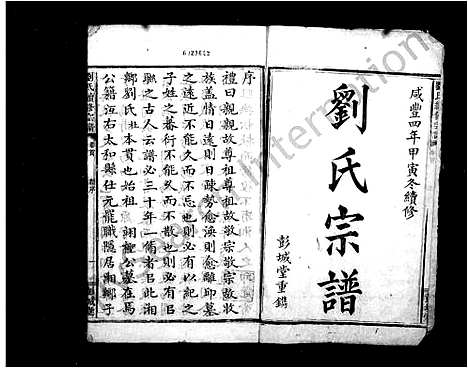 咸豐四年甲寅冬續修
劉氏宗譜
彭城堂重鐫
序
禮曰親親故尊祖尊祖故敬宗敬宗故收
族蓋情日遠則日疎勢愈渙則愈離邱墓
之遠近不能不忘也則必有以紀之
子姓之蕃衍不能久而不散也則必有以
聯之古人云譜必三十年一修者此湘
鄉劉氏
公籍江右太和縣仕元罷職隱居湘鄉子
劉氏續修宗譜
卷首
International